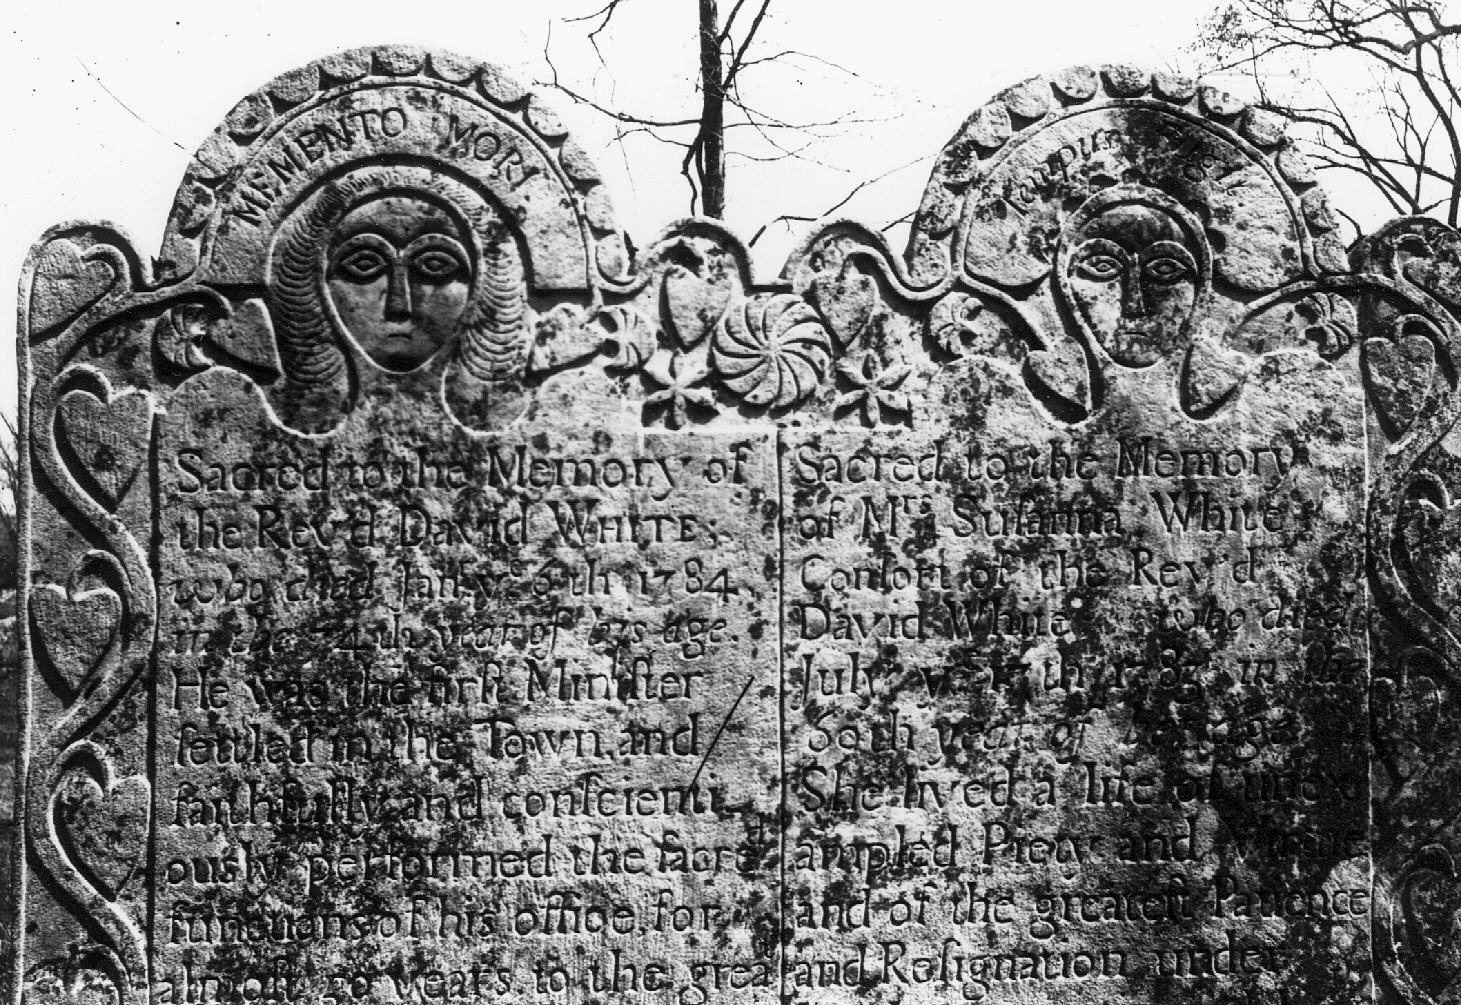 MEMENTO MORI
Tempus Fugit
Sacred to the Memory of
the Rev'd David WHITE;
who died Janʸ. yᵉ 6th 1784,
in the 74th year of his age.
He was the firſt Miniſter
ſettled in the Town, and
faithfully and conſcienti-
ously performed the ſacred
functions of his office, for
almoſt 50 years, to the great
Sacred to the Memory
of Mʳˢ Suſanna White
Conſort of the Rev'd
David White who died
July yᵉ 17th 1783 in the
69th year of her age.
She lived a life of unex
ampled Piety and Virtue
and of the greateſt Patience
and Reſignation under